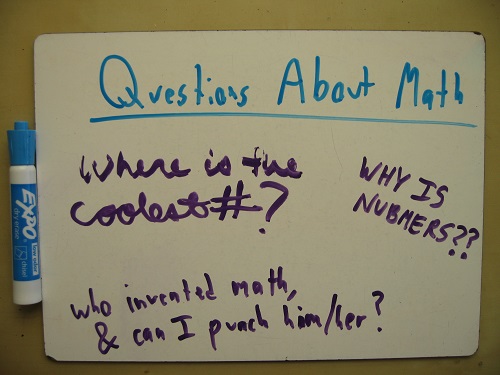 Questions About Math
Where is the
coolest #?
WHY IS
NUBMERS??
who invented math,
& can I punch him/her?
EXPO
dry erase